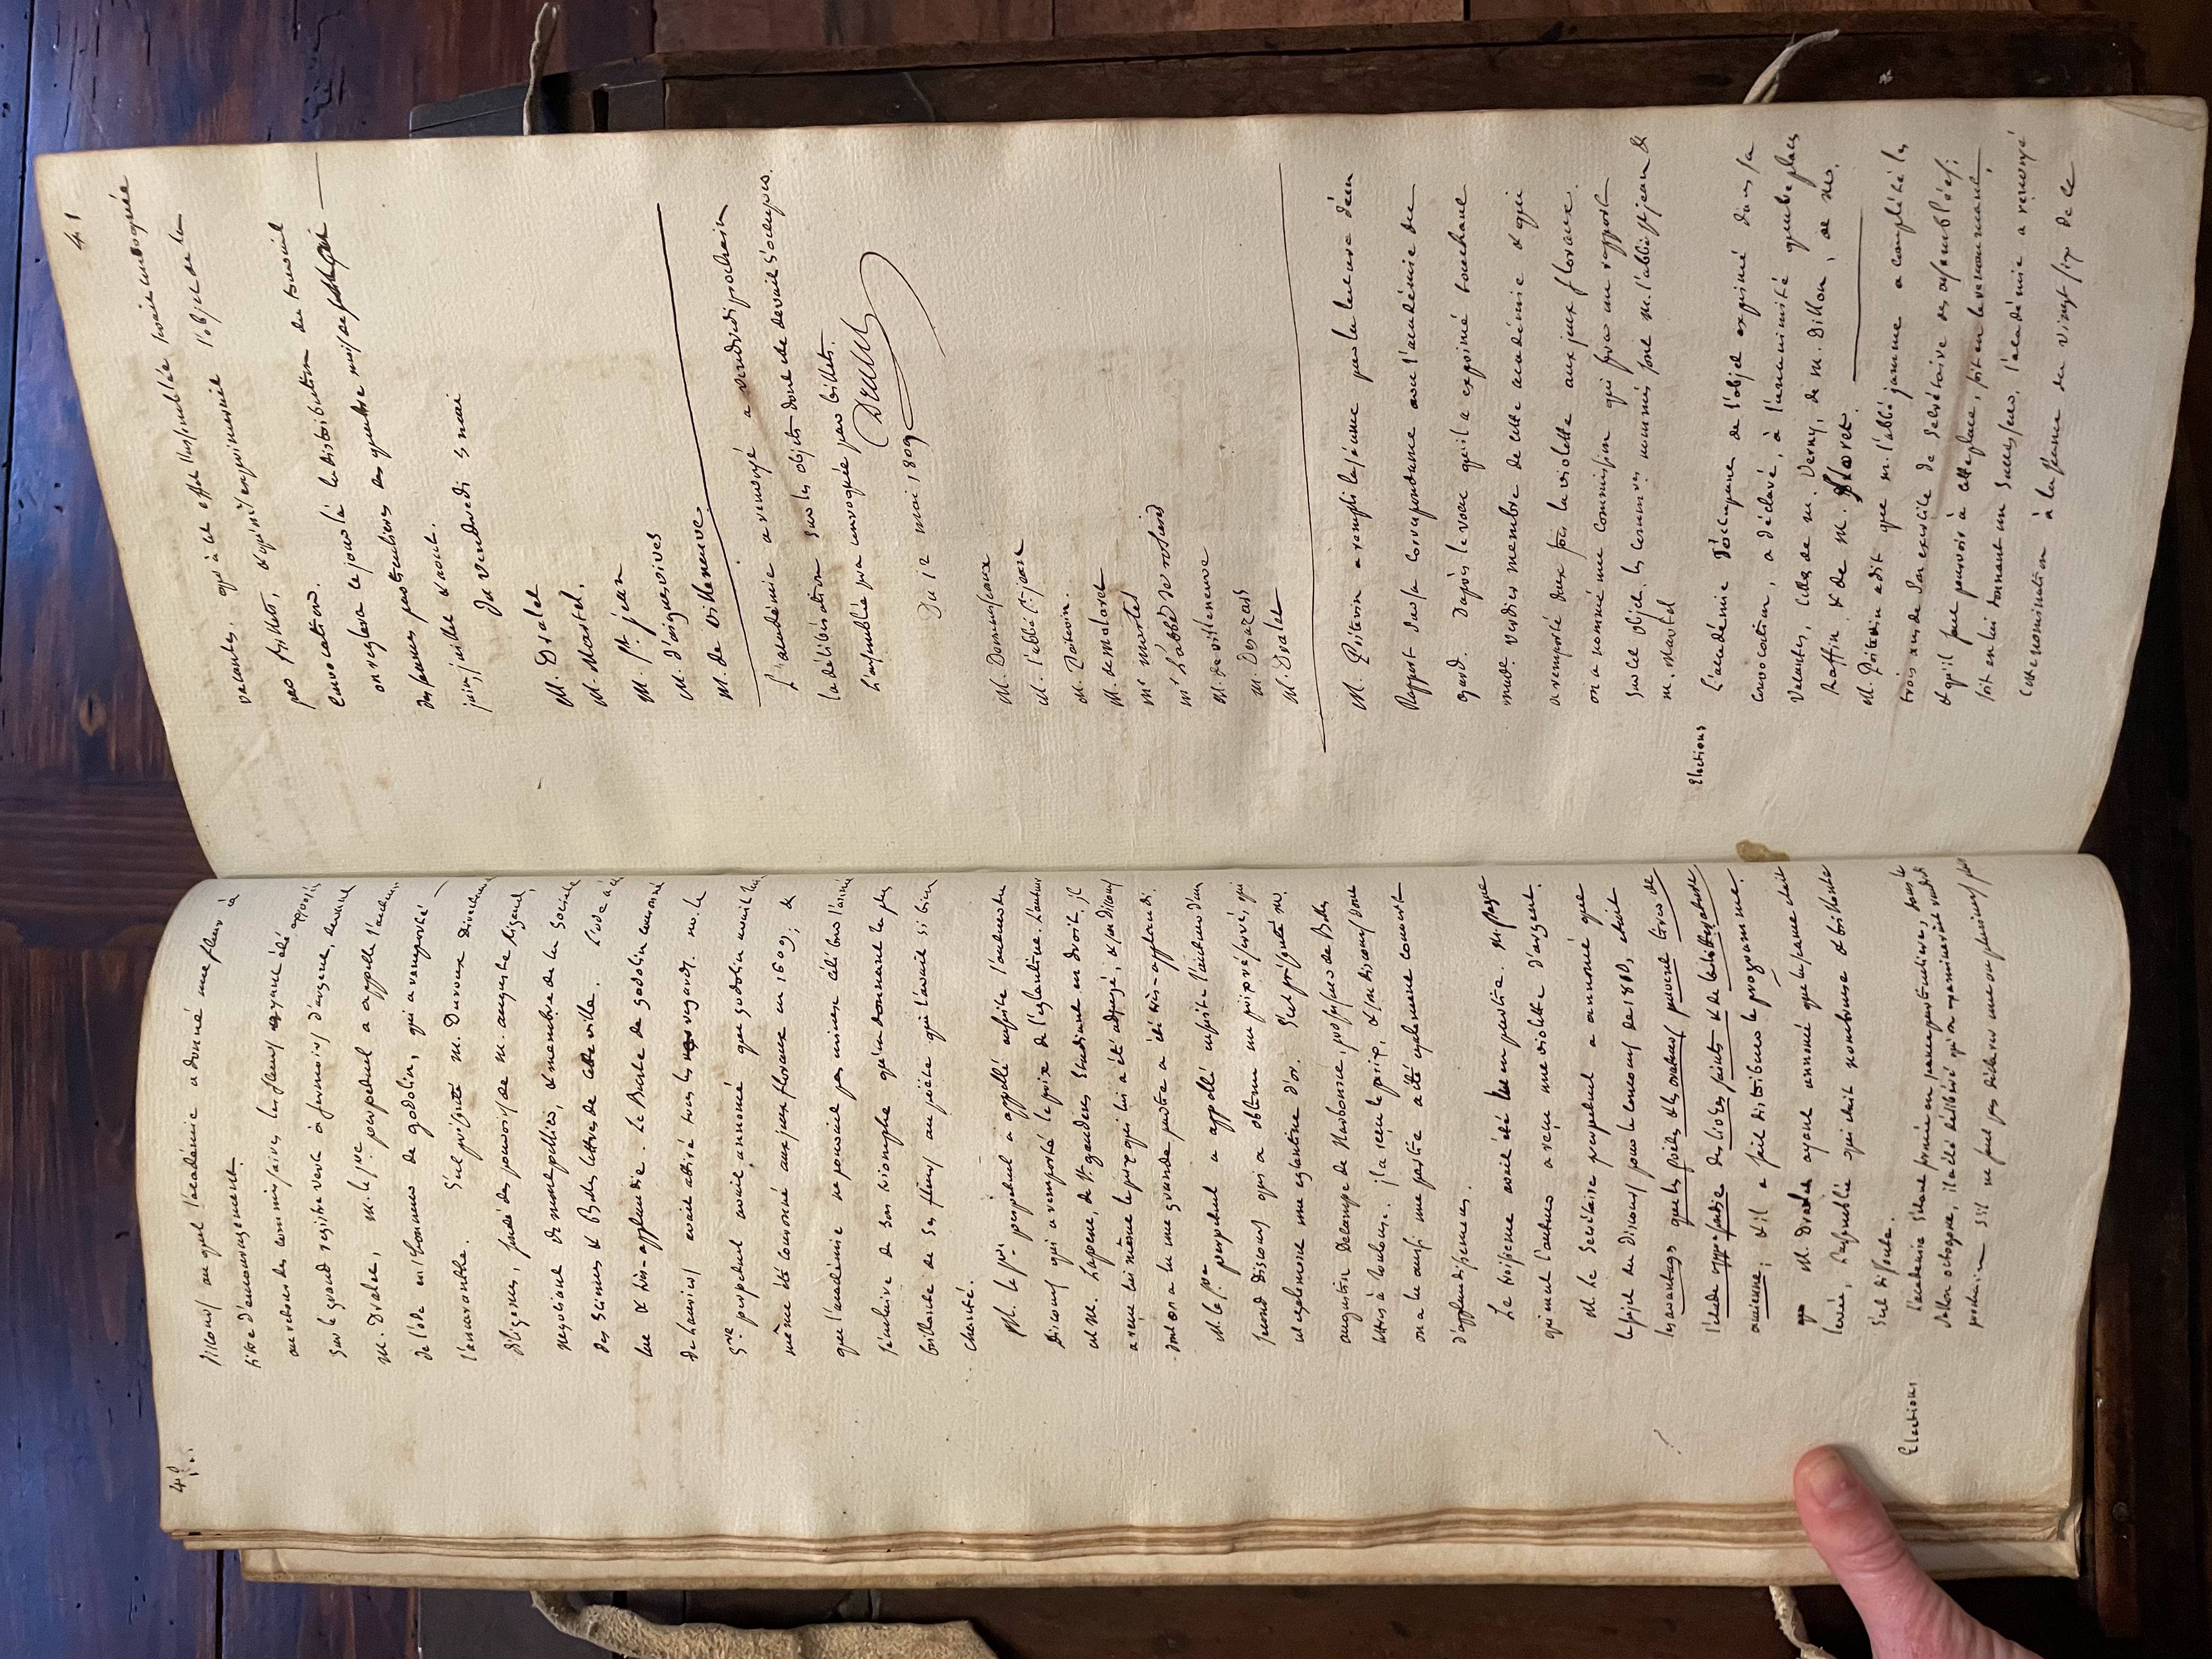 40.
Discours au quel l'académie a donné une fleur à
titre d'encouragement.
au retour des commissaires les fleurs ayant été apposées
sur le grand registre verd à fermoirs d'argent, devant
M. Dralet, M. le Sre perpetuel a appellé l'auteur
de l'ode en l'honneur de godolin, qui a remporté
l'amaranthe. S'est présenté M. Duroux directeur
diligences, fondé des pouvoirs de M. auguste Rigaud,
negotiant de montpellier, & membre de la Société
des Sciences & Belles lettres de cette ville. L'ode a été
lue & très-applaudie. Le Buste de godolin couronné
de lauriers avait attiré tous les regards. M. le
Sre perpetuel avait annoncé que godolin avait lui
même été couronné aux jeux floraux en 1609; &
que l'académie ne pouvait pas mieux célébrer l'anniv
séculaire de son triomphe qu'en donnant la plus
brillante de ses fleurs au poète qui l'avait si bien
chanté.
M. le Sre perpetuel a appellé ensuite l'auteur du
Discours qui a remporté le prix de l'églantine. L'auteur
est M. Lapene, de St gaudens Etudiant en droit, il
a reçu lui même le prix qui lui a été adjugé, & son discours
dont on a lu une grande partie a été très-applaudi.
M. le Sre perpetuel a appellé ensuite l'auteur d'un
second discours qui a obtenu un prix réservé, qui
est également une eglantine d'or. S'est présenté M.
augustin Delampe de Narbonne, professeur de Belles
lettres à Toulouse. il a reçu le prix, & son discours dont
on a lu aussi une partie a été egalement couvert
d'applaudissemens.
Le troisieme avait été lu en partie.
qui est l'auteur a reçu une violette d'argent.
M. le Secrétaire perpetuel a annoncé que
le sujet du Discours pour le concours de 1810, étoit
les avantages que les poëtes & les orateurs peuvent tirer de
l'etude des livres saints & de la littérature
ancienne; & il a fait distribuer le programme.
M. Dralet ayant annoncé que la séance était
levée, l'assemblée qui était nombreuse & brillante
s'est dissoute.
Elections
l'académie s'étant formée en séance particulière, sous le
même octroyée, il a été délibéré qu'on examinerait vendredi
prochain s'il ne faut pas déclarer une ou plusieurs places
41
vacantes. qu'à cet effet l'assemblée serait convoquée
par billets, & qu'ils exprimerait l'objet de la
convocation.
on reglera ce jour là la distribution du Recueil
des séances particulières des quatre mois de
juin, juillet & août.
Du Vendredi 5 mai
M. Dralet
M. Martel.
M. St. jean
M. d'aiguesvives
M. de Villeneuve.
L'académie a renvoyé a vendredi prochain
la délibération sur les objets dont elle devait s'occuper.
L'assemblée sera convoquée par billets.
Dralet
Du 12 mai 1809
M. l'abbé St. jean
M. Poitevin.
M. de malaret
Mr martel
Mr L'abbé du rozier
M. de villeneuve
M. Desazars
M. Dralet
M. Poitevin a rempli la séance par la lecture d'un
Rapport sur la correspondance avec l'académie du
gard. Daprès le vœu qu'il a exprimé touchant
made. Verdier membre de cette académie & qui
a remporté deux fois la violette aux jeux floraux.
on a nommé une commission qui fera un rapport
sur cet objet. les commres nommés sont M. l'abbé St jean &
M. Martel
Elections
L'académie s'occupant de l'objet exprimé dans sa
convocation, a déclaré, à l'unanimité quatre places
Vacantes, celles de M. Verny, de M. Dillon, de M.
Raffin & de M. Floret.
M. Poitevin a dit que M. l'abbé jamme a complété les
trois ans de son exercice de secrétaire des assemblées;
& qu'il faut pourvoir à cette place, soit en le renommant,
soit en lui donnant un successeur, l'académie a renvoyé
cette nomination à la séance du vingt six de ce